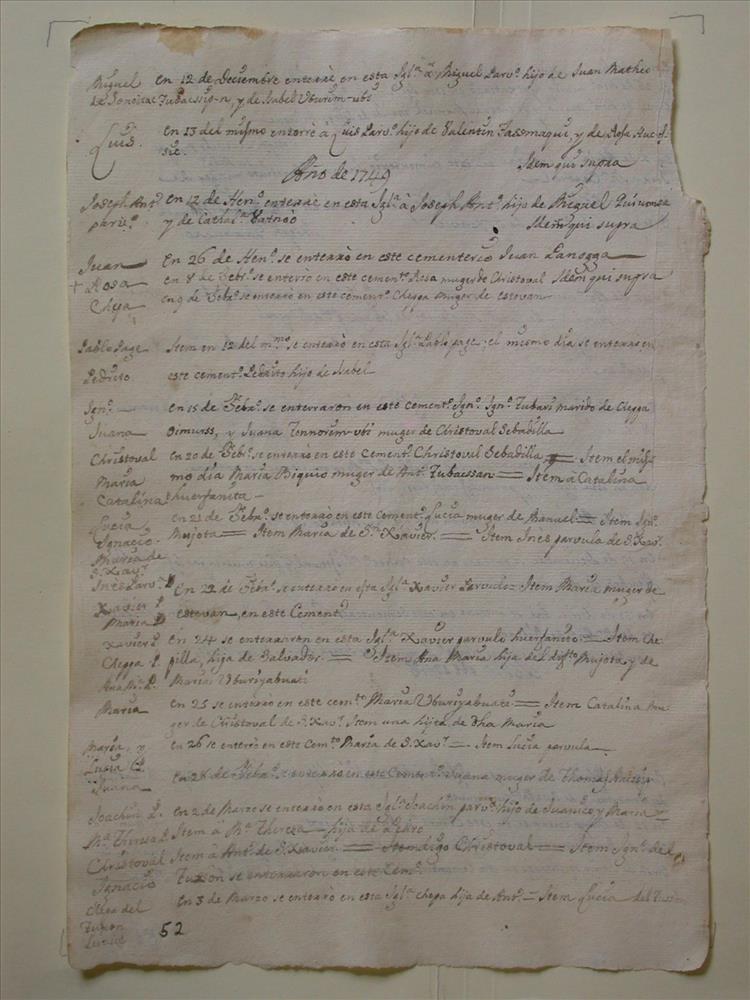 Miguel en 12 de Deciembre enterrè en esta Igl.ª à Miguel Parv.º hijo de Juan Matheo
y de Isabel Uburim-ubi
Luis. en 13 del mismo enterrè à Luis Parv.º hijo de Valentin y de Rosa
Idem qui supra
Año de 1749
Joseph Ant.º en 12 de Hen.º enterrè en esta Igl.ª à Joseph Ant.º hijo de Miguel
y de Idem qui supra
Juan En 26 de Hen.º se enterrò en este cementerio Juan
+ Rosa en 8 de Febr.º se enterrò en este cement.º Rosa muger de Christoval Idem qui supra
Chepa en 9 de Febr.º se enterrò en este cement.º Cheppa muger de estevan
Pablo Page Item en 12 del m.mo se enterrò en esta Igl.ª Pablo page. el mismo dia se enterrò en
Pedrito este cement.º Pedrito hijo de Isabel
Ign.º en 15 de Febr.º se enterraron en este cement.º Ign.º Tubari marido de Cheppa
Juana y Juana muger de Christoval Sebadilla
Christoval en 20 de Febr.º se enterrò en este Cement.º Christoval Sebadilla = Item el mis
Maria mo dia Maria Biquio muger de Ant.º Tubacssan = Item à Catalina
Catalina huerfanita
Lucia en 21 de Febr.º se enterrò en este Cement.º Lucia muger de Manuel = Item Ign.º
Ignacio. Mujota = Item Maria de S.n Xavier. = Item Ines parvula de S. Xav.r
Maria de
S. Xav.r
Ines Parv.ª En 22 de Febr.º se enterrò en esta Igl.ª Xavier Parvulo = Item Maria muger de
Xavier P.
Maria estevan, en este Cement.º
Xavier P. en 24 se enterraron en esta Igl.ª Xavier parvulo huerfanito. = Item Che
Cheppa P. pilla, hija de Salvador. = Item Ana Maria hija del dif.to Mujota, y de
Ana M.ª P. Maria Uburiyabuati
Maria en 25 se enterrò en este cem.to Maria Uburiyabuati = Item Catalina mu
ger de Christoval de S. Xav.r Item una hijita de dha Maria
Maria, y en 26 se enterrò en este Cem.to Maria de S. Xav.r = Item Lucia parvula
Lucia P.
Juana en 28 de Febr.º se enterrò en este Cement.º Juana muger de Thomas
Joachin P. en 2 de Marzo se enterrò en esta Igl.ª Joachin parv.º hijo de Juanico y Maria
M.ª Theresa P. Item à M.ª Theresa hija de Pedro
Christoval Item à Ant.º de S. Xavier. = Item digo Christoval = Item Ign.º del
Ignacio Tuxon se enterraron en este Cem.º
Chepa del en 3 de Marzo se enterrò en esta Igl.ª chepa hija de Ant.º = Item Lucia del
Tuxon
Lucia 52